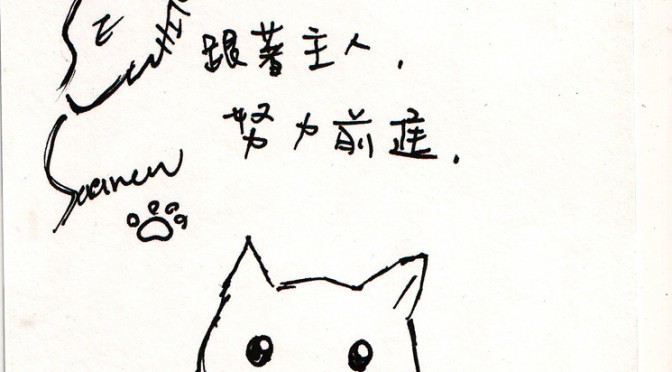 跟著主人,
努力前進.